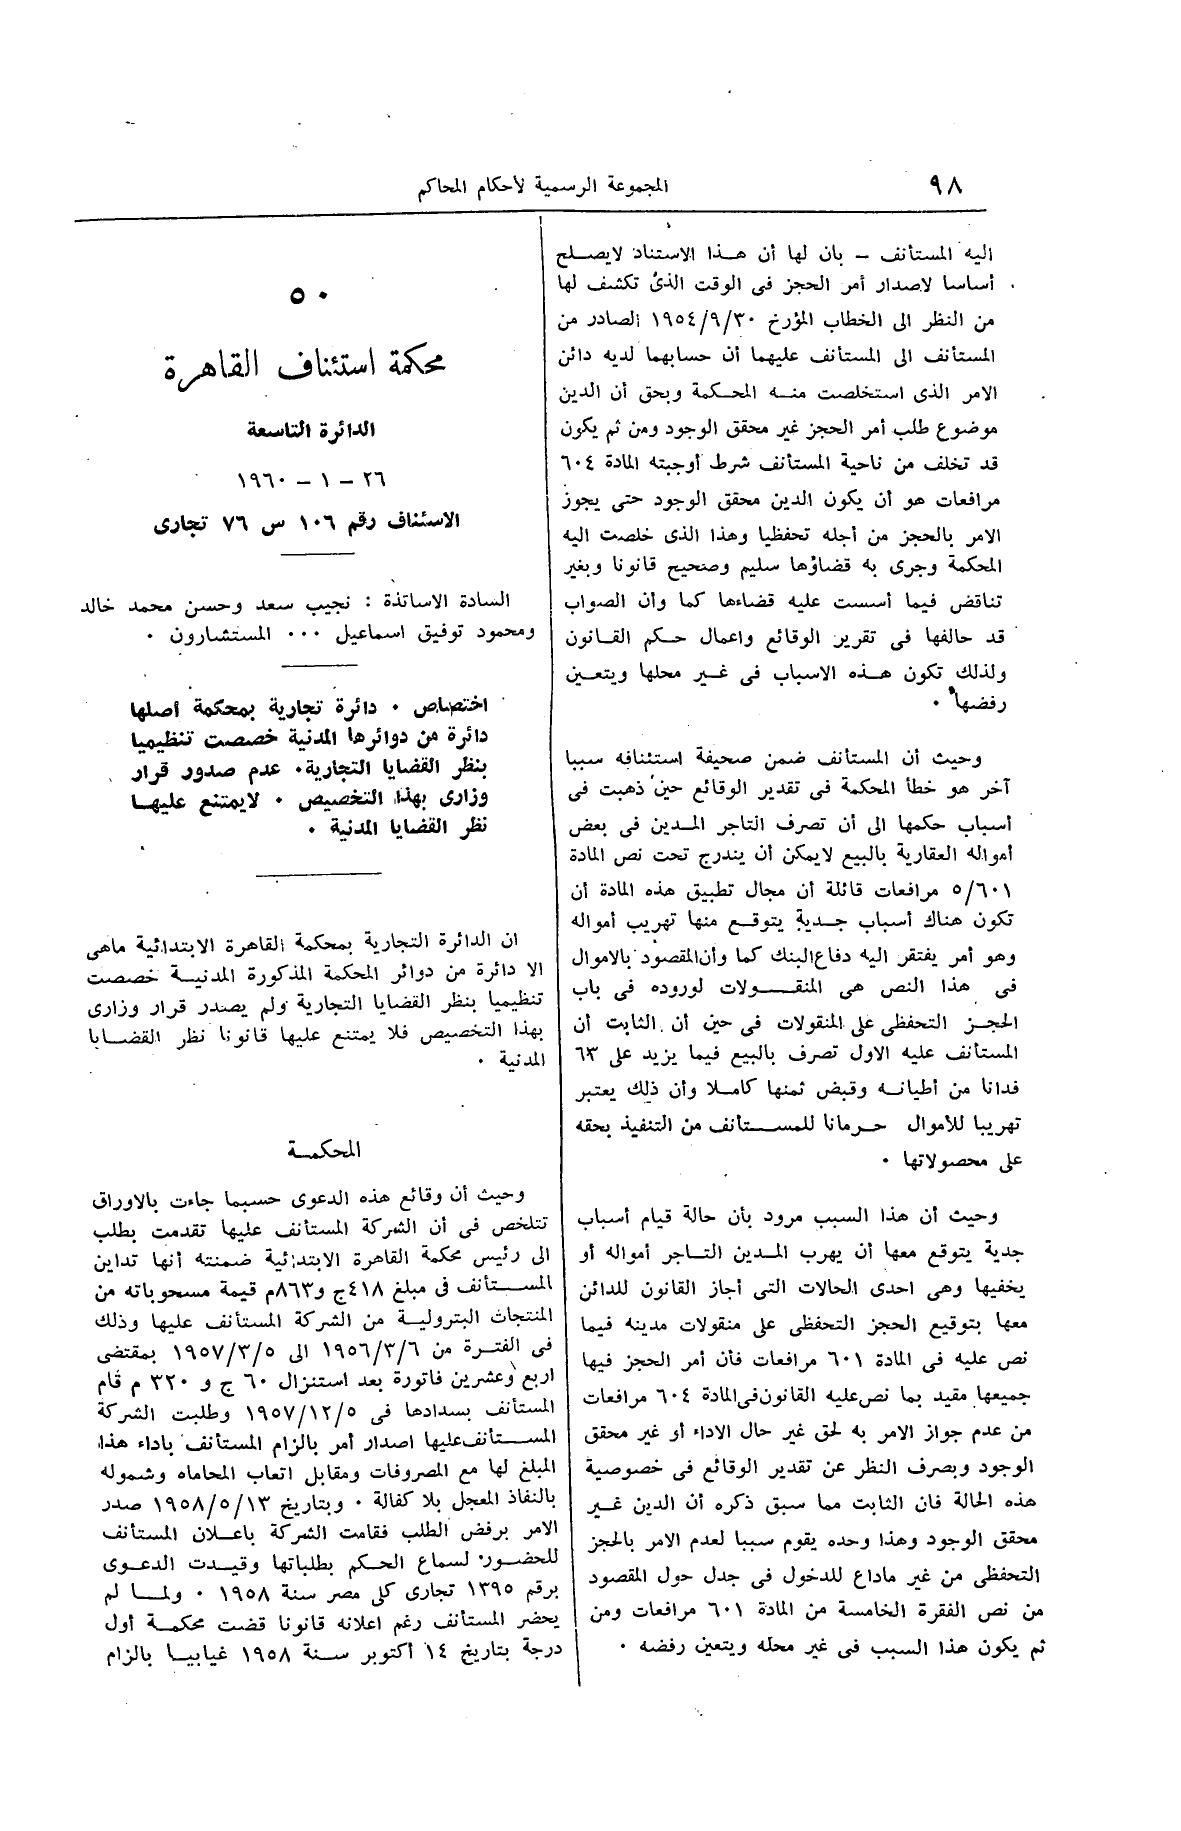 ٩٨
المجموعة الرسمية لأحكام المحاكم
اليه المستأنف – بان لها أن هذا الاستناد لايصلح
أساسا لاصدار أمر الحجز فى الوقت الذى تكشف لها
من النظر الى الخطاب المؤرخ ١٩٥٤/٩/٣٠ الصادر من
المستأنف الى المستأنف عليهما أن حسابهما لديه دائن
الامر الذى استخلصت منه المحكمة وبحق أن الدين
موضوع طلب أمر الحجز غير محقق الوجود ومن ثم يكون
قد تخلف من ناحية المستأنف شرط أوجبته المادة ٦٠٤
مرافعات هو أن يكون الدين محقق الوجود حتى يجوز
الامر بالحجز من أجله تحفظيا وهذا الذى خلصت اليه
المحكمة وجرى به قضاؤها سليم وصحيح قانونا وبغير
تناقض فيما أسست عليه قضاءها كما وأن الصواب
قد حالفها فى تقرير الوقائع واعمال حكم القانون
ولذلك تكون هذه الاسباب فى غير محلها ويتعين
رفضها ٠
وحيث أن المستأنف ضمن صحيفة استئنافه سببا
آخر هو خطأ المحكمة فى تقدير الوقائع حين ذهبت فى
أسباب حكمها الى أن تصرف التاجر المدين فى بعض
أمواله العقارية بالبيع لايمكن أن يندرج تحت نص المادة
٥/٦٠١ مرافعات قائلة أن مجال تطبيق هذه المادة أن
تكون هناك أسباب جدية يتوقع منها تهريب أمواله
وهو أمر يفتقر اليه دفاع البنك كما وأن المقصود بالاموال
فى هذا النص هى المنقولات لوروده فى باب
الحجز التحفظى على المنقولات فى حين أن الثابت أن
المستأنف عليه الاول تصرف بالبيع فيما يزيد على ٦٣
فدانا من أطيانه وقبض ثمنها كاملا وأن ذلك يعتبر
تهريبا للأموال حرمانا للمستأنف من التنفيذ بحقه
على محصولاتها ٠
وحيث أن هذا السبب مرود بأن حالة قيام أسباب
جدية يتوقع معها أن يهرب المدين التاجر أمواله أو
يخفيها وهى احدى الحالات التى أجاز القانون للدائن
معها بتوقيع الحجز التحفظى على منقولات مدينه فيما
نص عليه فى المادة ٦٠١ مرافعات فأن أمر الحجز فيها
جميعها مقيد بما نص عليه القانون فى المادة ٦٠٤ مرافعات
من عدم جواز الامر به لحق غير حال الاداء أو غير محقق
الوجود وبصرف النظر عن تقدير الوقائع فى خصوصية
هذه الحالة فان الثابت مما سبق ذكره أن الدين غير
محقق الوجود وهذا وحده يقوم سببا لعدم الامر بالحجز
التحفظى من غير ماداع للدخول فى جدل حول المقصود
من نص الفقرة الخامسة من المادة ٦٠١ مرافعات ومن
ثم يكون هذا السبب فى غير محله ويتعين رفضه ٠
٥٠
محكمة استئناف القاهرة
الدائرة التاسعة
٢٦ – ١ – ١٩٦٠
الاستئناف رقم ١٠٦ س ٧٦ تجارى
السادة الاساتذة : نجيب سعد وحسن محمد خالد
ومحمود توفيق اسماعيل ٠٠٠ المستشارون ٠
اختصاص ٠ دائرة تجارية بمحكمة أصلها
دائرة من دوائرها المدنية خصصت تنظيميا
بنظر القضايا التجارية٠ عدم صدور قرار
وزارى بهذا التخصيص ٠ لايمتنع عليها
نظر القضايا المدنية ٠
ان الدائرة التجارية بمحكمة القاهرة الابتدائية ماهى
الا دائرة من دوائر المحكمة المذكورة المدنية خصصت
تنظيميا بنظر القضايا التجارية ولم يصدر قرار وزارى
بهذا التخصيص فلا يمتنع عليها قانونا نظر القضايا
المدنية ٠
المحكمة
وحيث أن وقائع هذه الدعوى حسبما جاءت بالاوراق
تتلخص فى أن الشركة المستأنف عليها تقدمت بطلب
الى رئيس محكمة القاهرة الابتدائية ضمنته أنها تداين
المستأنف فى مبلغ ٤١٨ج و٨٦٣م قيمة مسحوباته من
المنتجات البترولية من الشركة المستأنف عليها وذلك
فى الفترة من ١٩٥٦/٣/٦ الى ١٩٥٧/٣/٥ بمقتضى
اربع وعشرين فاتورة بعد استنزال ٦٠ ج و ٣٢٠ م قام
المستأنف بسدادها فى ١٩٥٧/١٢/٥ وطلبت الشركة
المستأنف عليها اصدار أمر بالزام المستأنف باداء هذا
المبلغ لها مع المصروفات ومقابل اتعاب المحاماه وشموله
بالنفاذ المعجل بلا كفالة ٠ وبتاريخ ١٩٥٨/٥/١٣ صدر
الامر برفض الطلب فقامت الشركة باعلان المستأنف
للحضور لسماع الحكم بطلباتها وقيدت الدعوى
برقم ١٣٩٥ تجارى كلى مصر سنة ١٩٥٨ ٠ ولما لم
يحضر المستأنف رغم اعلانه قانونا قضت محكمة أول
درجة بتاريخ ١٤ أكتوبر سنة ١٩٥٨ غيابيا بالزام